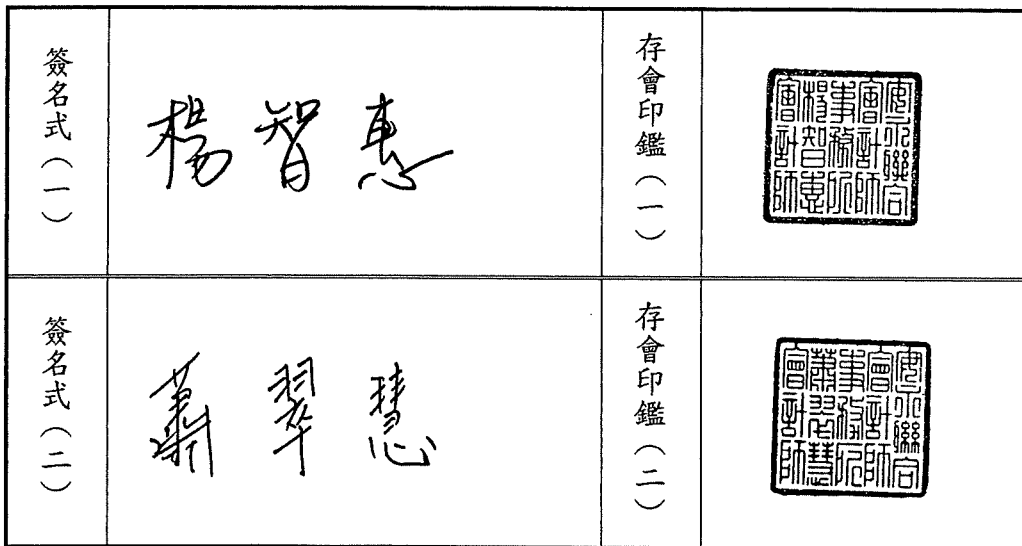 簽名式（一）
楊智惠
存會印鑑（一）
安永聯合
會計師
事務所
楊智惠
會計師
簽名式（二）
蕭翠慧
存會印鑑（二）
安永聯合
會計師
事務所
蕭翠慧
會計師